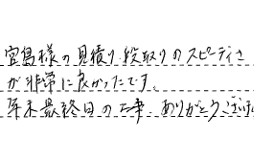 宮島様の見積り、段取りのスピーディさ
が非常に良かったです。
年末最終日の工事、ありがとうござい